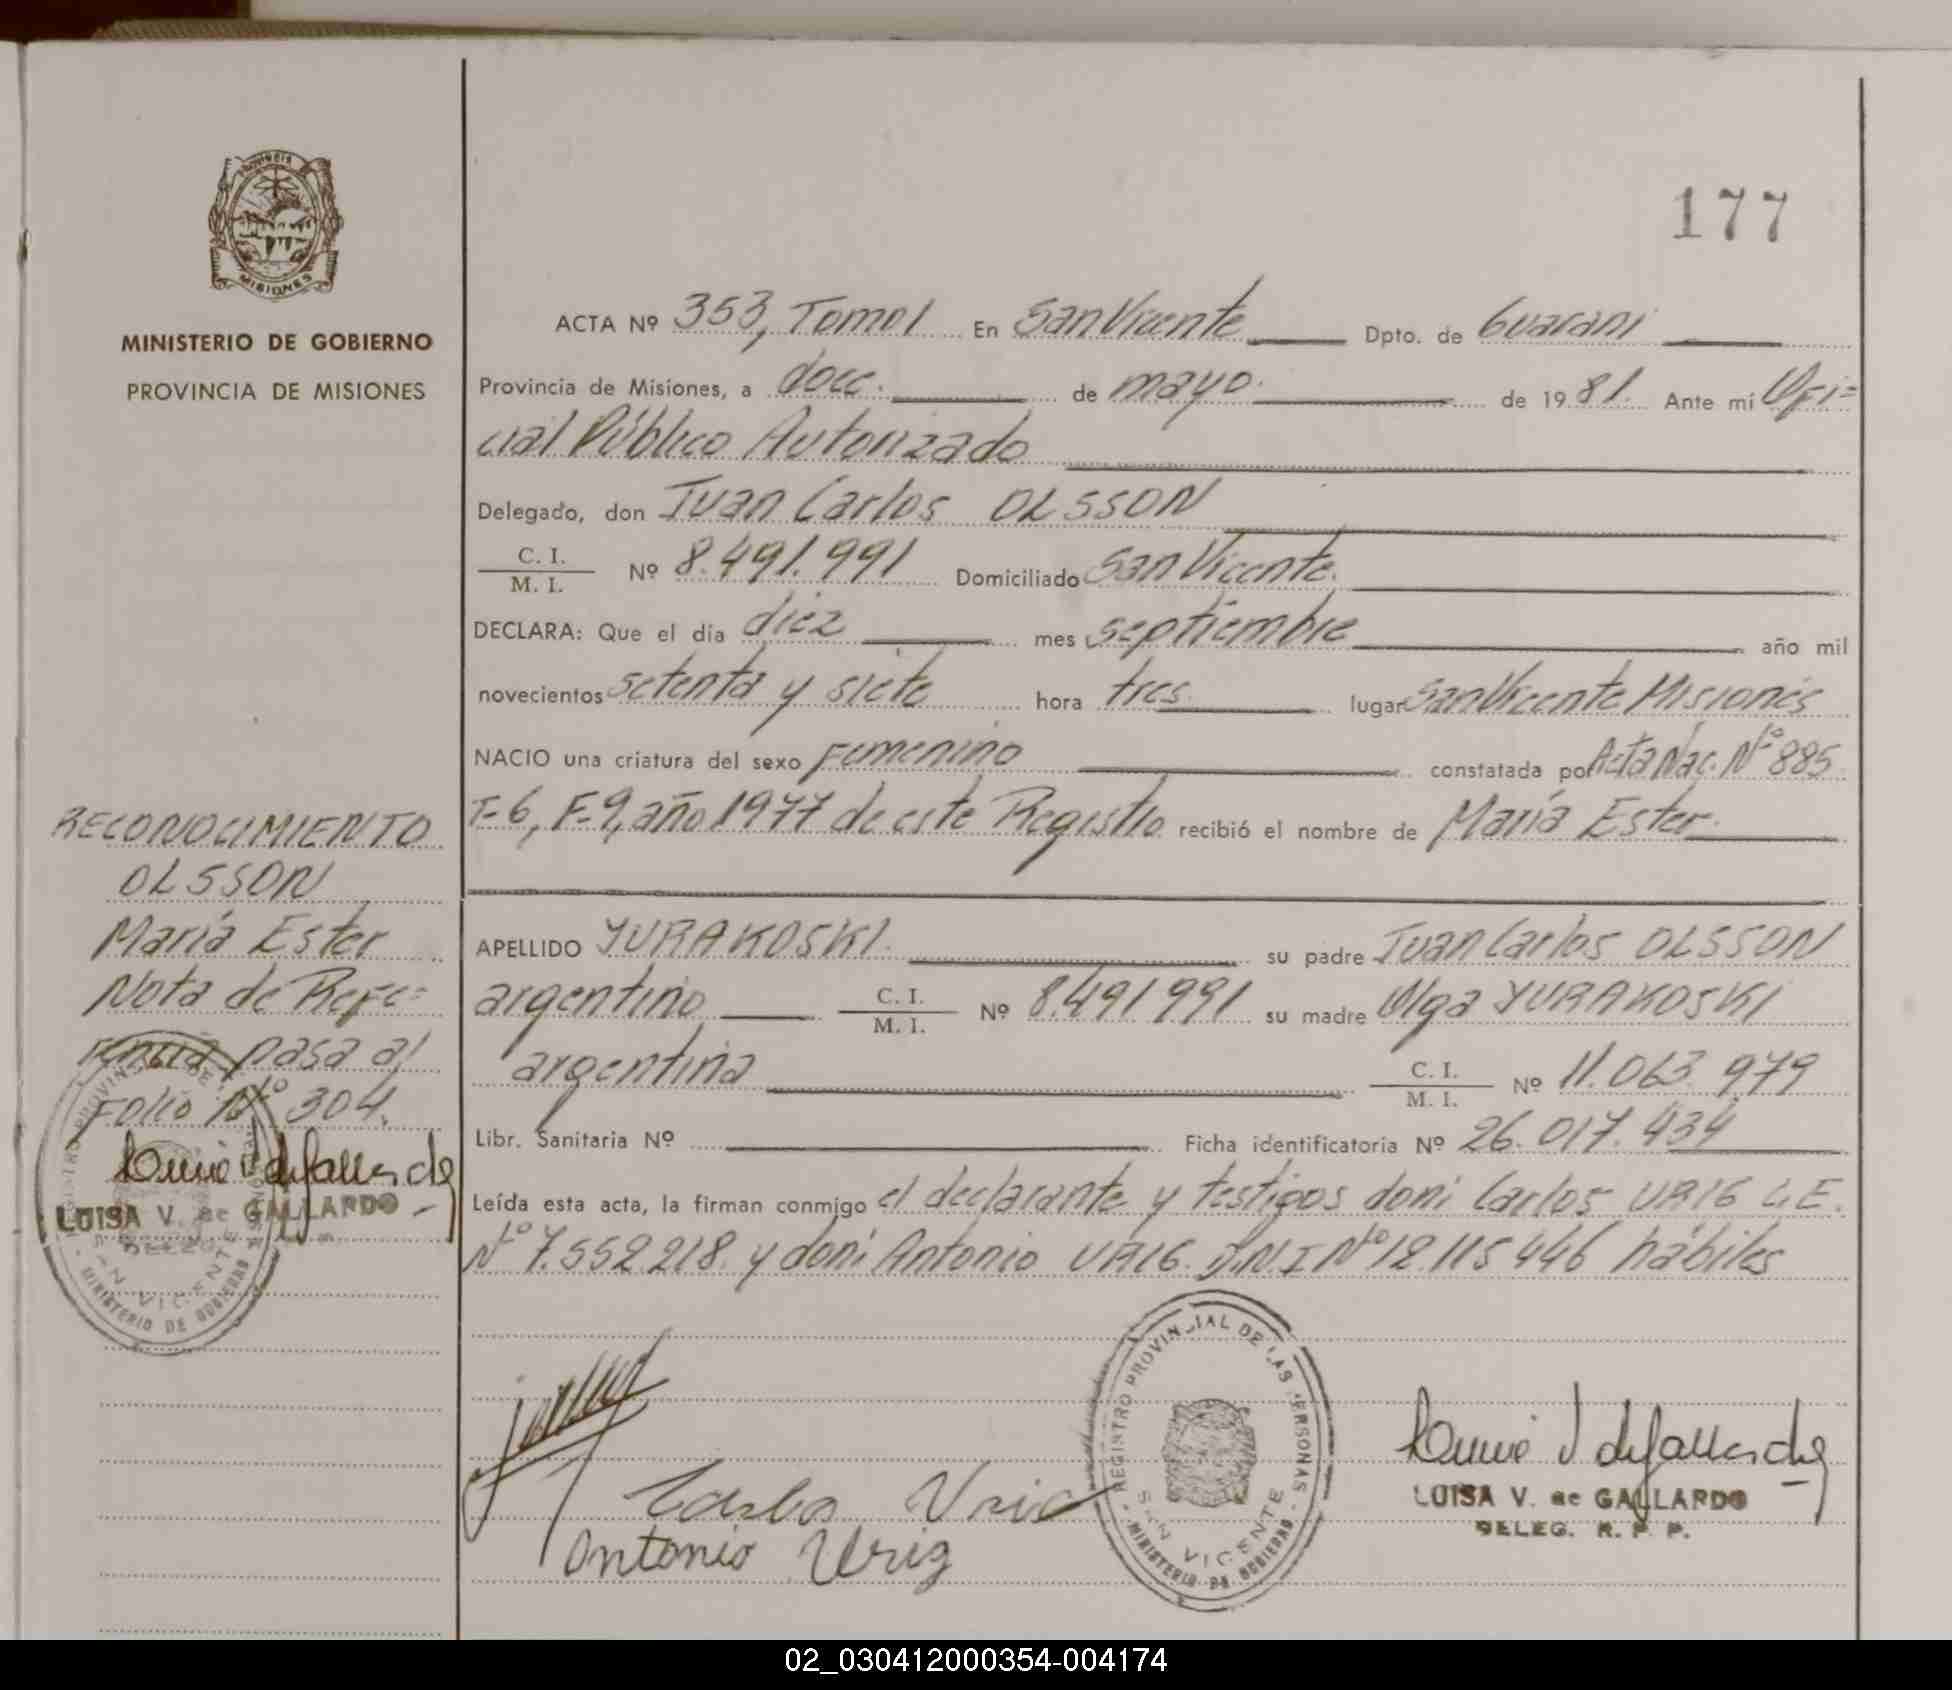 PROVINCIA
MISIONES
MINISTERIO DE GOBIERNO
PROVINCIA DE MISIONES
177
ACTA Nº 353, Tomo 1 En San Vicente Dpto. de Guaraní
Provincia de Misiones, a doce. de mayo. de 1981. Ante mí Ofi=
cial Público Autorizado
Delegado, don Juan Carlos OLSSON
C. I.
M. I. Nº 8.491.991 Domiciliado San Vicente.
DECLARA: Que el día diez mes septiembre año mil
novecientos setenta y siete hora tres. lugar San Vicente Misiones
NACIO una criatura del sexo Femenino constatada por Acta Nac. Nº 885
T-6, F-9, año 1977 de este Registro recibió el nombre de María Ester.
RECONOCIMIENTO
OLSSON
María Ester
Nota de Refe=
rencia pasa al
Folio Nº 304.
LUISA V. de GALLARDO
REGISTRO PROVINCIAL DE LAS PERSONAS
SAN VICENTE
MINISTERIO DE GOBIERNO
APELLIDO YURAKOSKI. su padre Juan Carlos OLSSON
argentino C. I.
M. I. Nº 8.491991 su madre Olga YURAKOSKI
argentina C. I.
M. I. Nº 11.063.979
Libr. Sanitaria Nº Ficha identificatoria Nº 26.017.434
Leída esta acta, la firman conmigo el declarante y testigos doni Carlos URIG C.E.
Nº 7.552.218. y doni Antonio URIG. D.N.I Nº 12.115446 hábiles
Antonio Urig
REGISTRO PROVINCIAL DE LAS PERSONAS
SAN VICENTE
MINISTERIO DE GOBIERNO
LUISA V. de GALLARDO
DELEG. R. P. P.
02_030412000354-004174